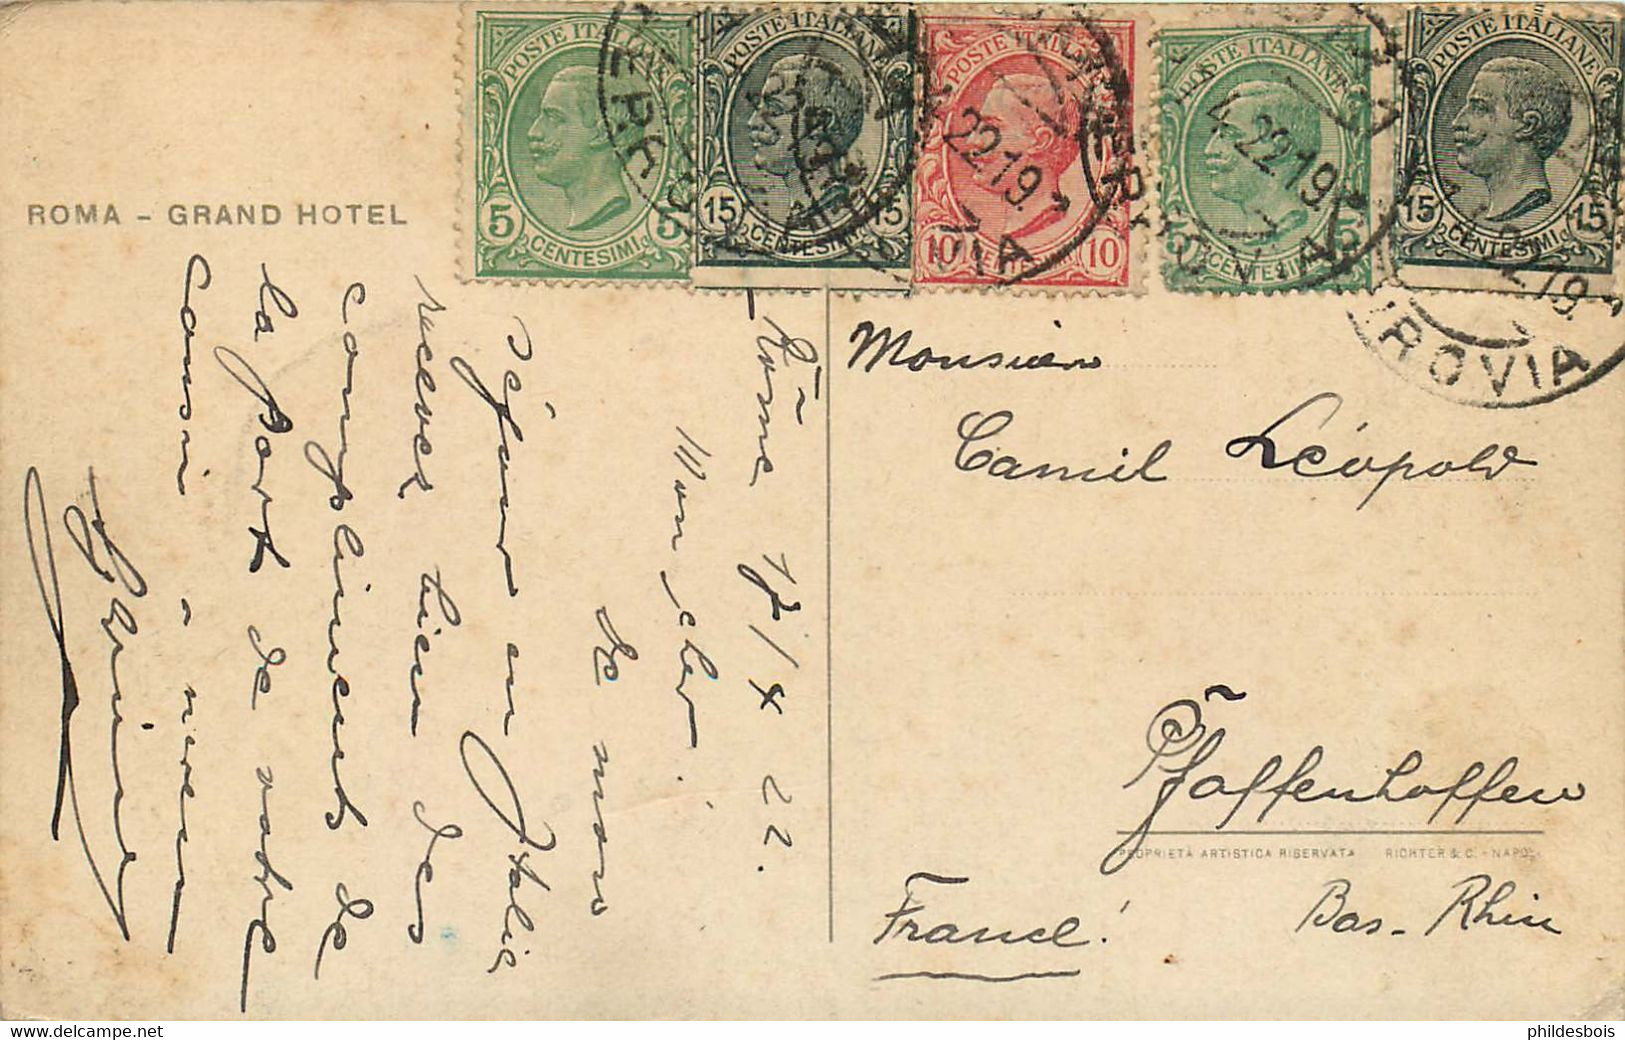 POSTE ITALIANE
5 5
CENTESIMI
POSTE ITALIANE
15 15
CENTESIMI
POSTE ITALIANE
10 10
CENTESIMI
POSTE ITALIANE
5 5
CENTESIMI
POSTE ITALIANE
15 15
CENTESIMI
4.22 19
ROVIA
ROMA - GRAND HOTEL
Rome 17/4 22.
Mon cher!
De mon
séjour en Italie
recever bien des
compliments de
la part de votre
Cousin
Monsieur
Camil Léopold
Pfaffenhoffen
PROPRIETÀ ARTISTICA RISERVATA RICHTER & C. - NAPOLI
Bas-Rhin
France!
phildesbois